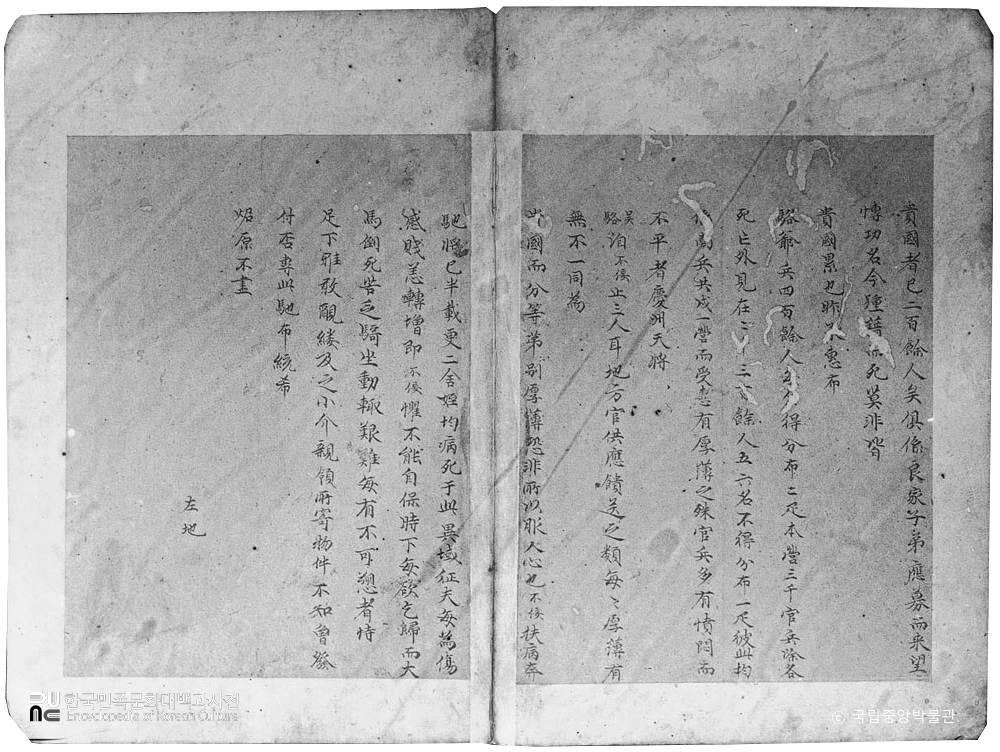 貴國者已二百餘人矣俱係良家子弟應募而來望
慱功名今種諸病死莫非皆
貴國累也昨以惠布
駱爺兵四百餘人多得分布二疋本營三千官兵除各
死亡外見在二千三百餘人五六名不得分布一疋彼此均
係南兵共成一營而受恚有厚薄之殊官兵多有憤悶而
不平者慶州天將
吳駱洎不佞止三人耳地方官供應饋送之類每〻厚薄有
無不一同為
此國而分等第別厚薄恐非所以服人心也不佞扶病奔
馳將已半載更二舍姪均病死于此異域征夫每為傷
感賤恙轉增即不佞懼不能自保時下每欲乞歸而大
馬倒死苦乏騎坐動輒艱難每有不可憩者恃
足下雅敢覼縷及之小介親領所寄物件不知曾發
付否專此馳布統希
炤原不盡
左地
한국민족문화대백과사전
Encyclopedia of Korean Culture
© 국립중앙박물관